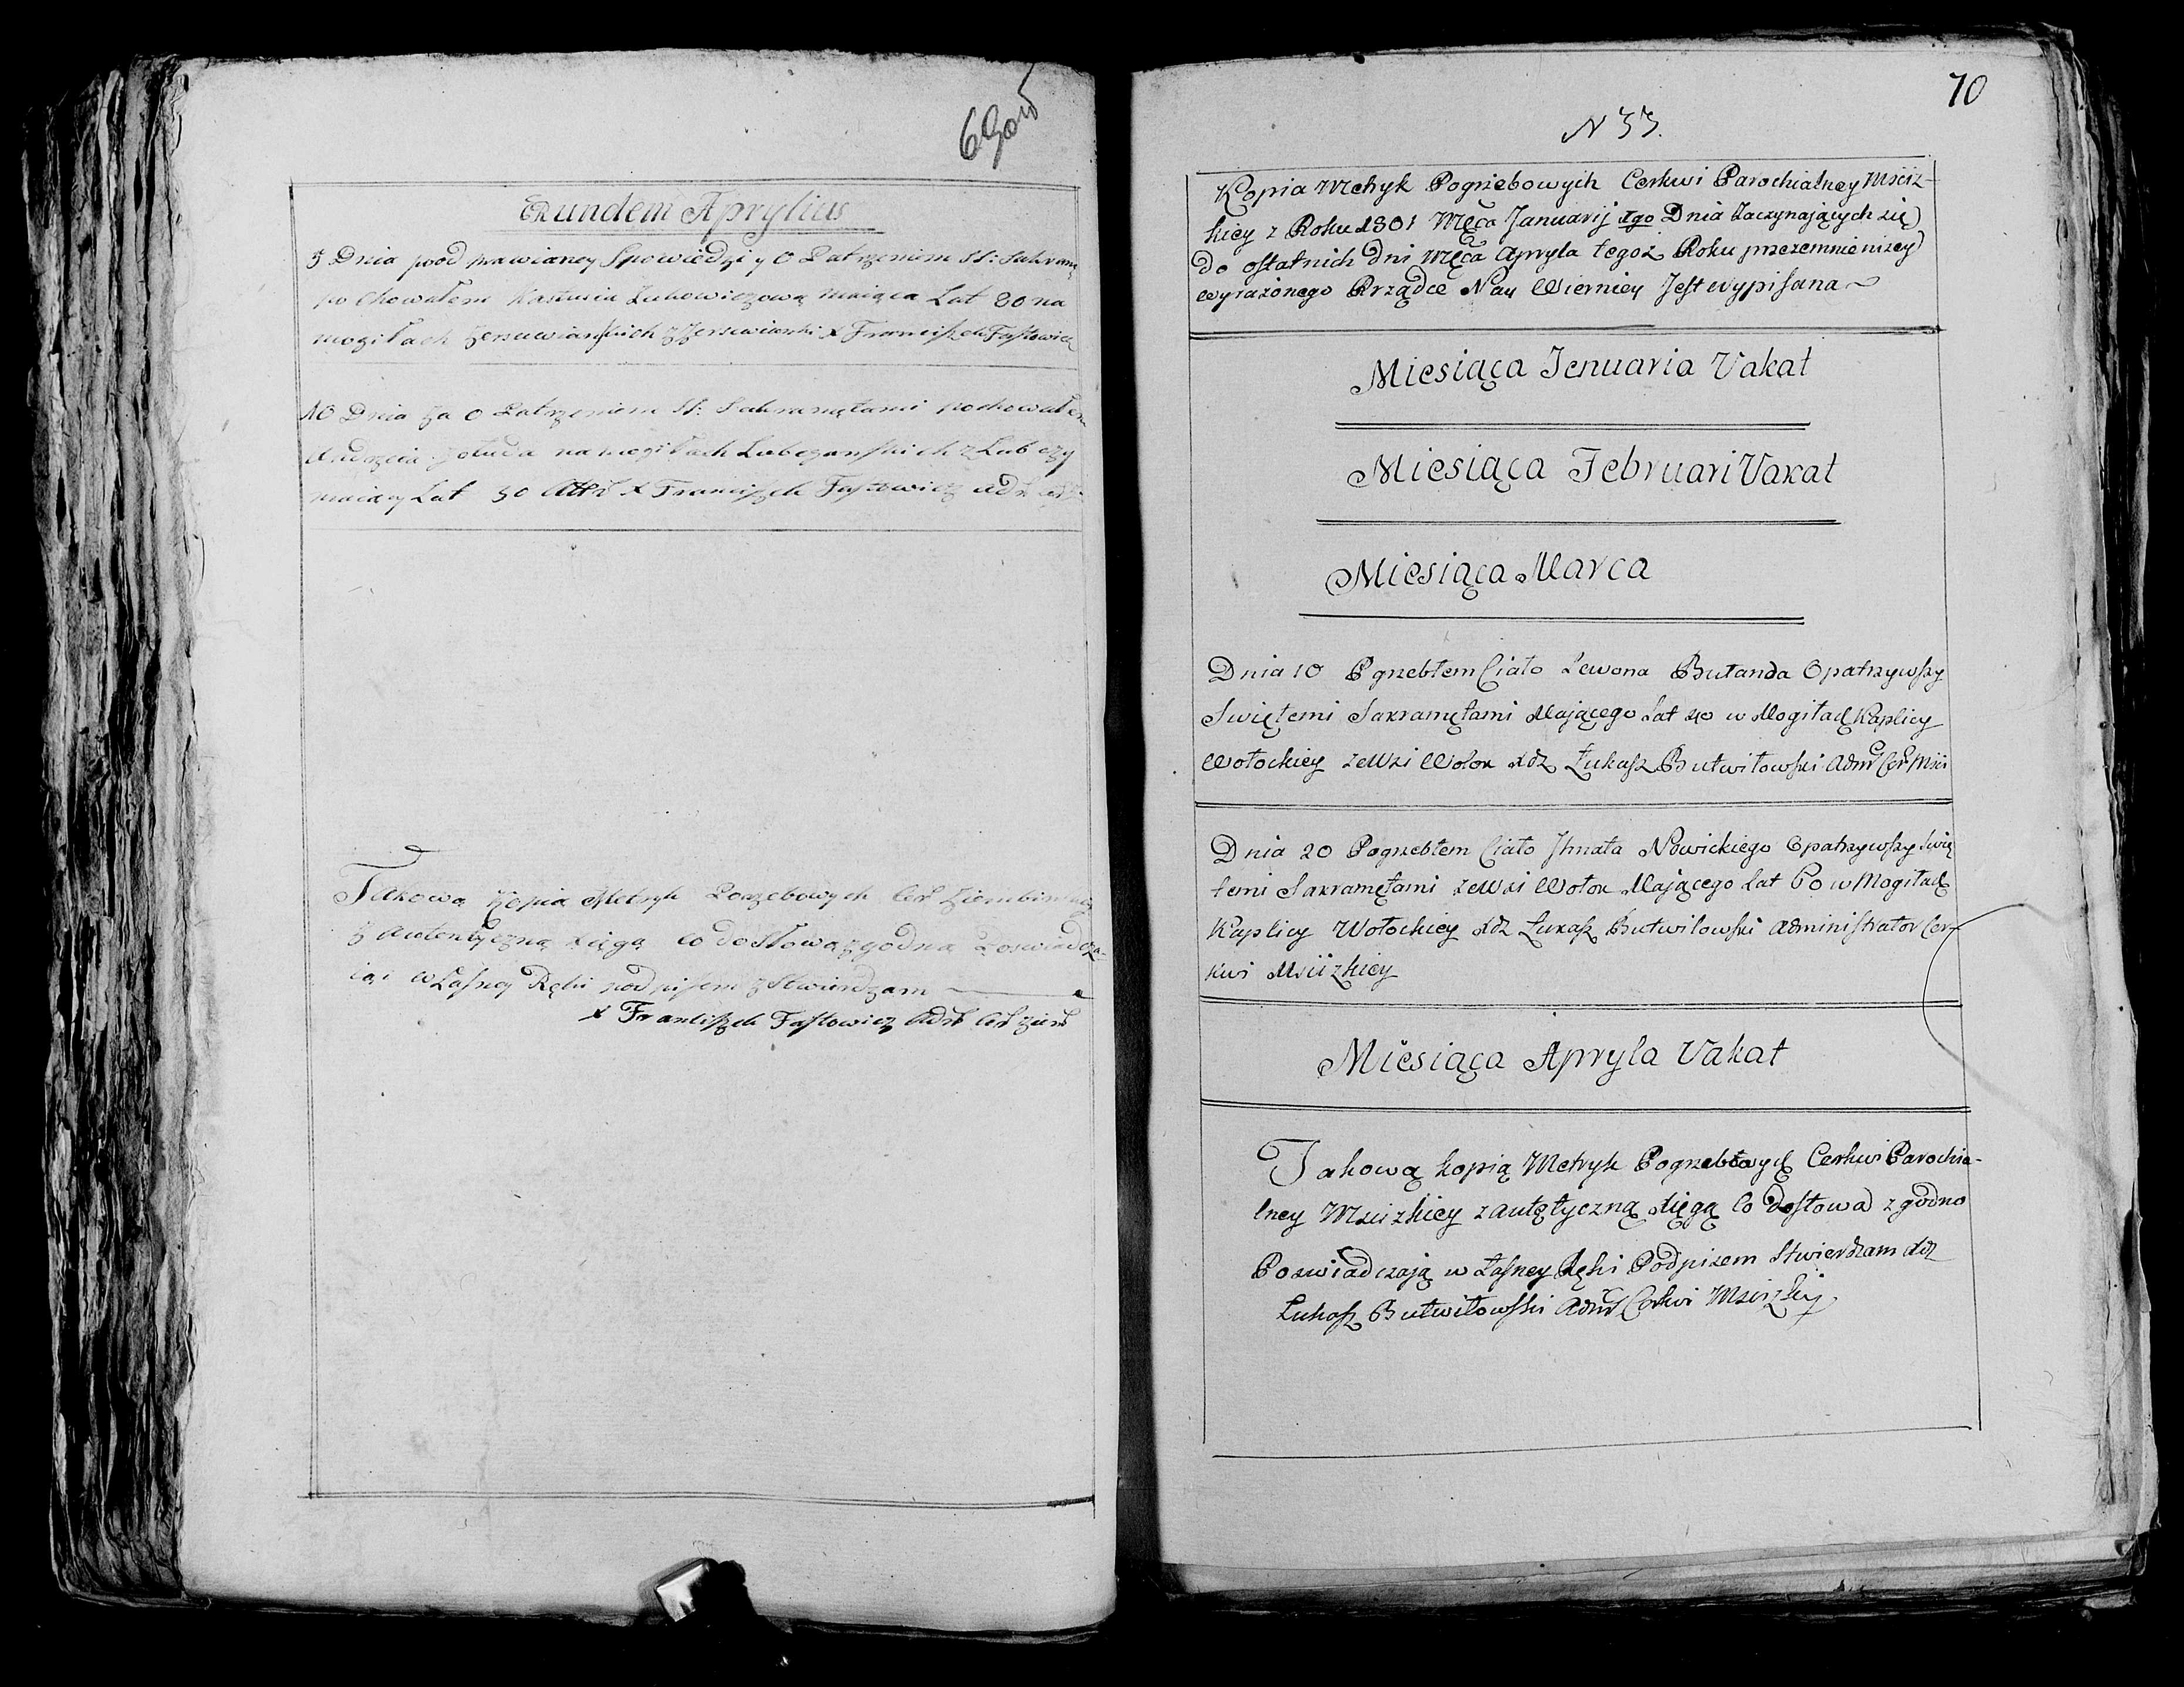 69об
Eundem Aprylius
5 Dnia pood prawianey Spowiedzi y O Patrzeniem SS: Sakramę
po Chowałem Łukowiczową maiąca Lat 80 na
mogiłach x Franciszek Fastowicz
10 Dnia za O Patrzeniem SS: Sakramętami pochowałem
Andrzeia na mogiłach Lubczanskich z Lubczy
maiący Lat 50 x Franciszek Fastowicz
Takową Kopią Metryk Pogzebowych
z Autentyczną xięgą co do Słowa zgodną Poswiadcza-
iąi wLasney Ręki podpisem zStwierdzam
x Franciszek Fastowicz
70
N 33.
Kopia Metryk Pogrzebowych Cerkwi Parochialney Msciz-
kiey z Roku 1801 Męca Januarij 1go Dnia Zaczynaiących się
do ostatnich dni Męca Apryla tegoż Roku przezemnie niżey
wyrażonego Rządce Nay Wierniey Jest wypisana
Miesiąca Jenuaria Vakat
Miesiąca Februari Vakat
Miesiąca Marca
Dnia 10 Pgrzebłem Ciało Lewona Butanda Opatrzywszy
Swiętemi Sakramętami Mającego Lat 40 w Mogiłach Kaplicy
Wołockiey zewsi Wołok xdz Łukasz Butwiłowski Admr Cer Msci
Dnia 20 Pogrzebłem Ciało Jhnata Nowickiego Opatrzywszy Swię
temi Sakramętami zewsi Wołok Mającego Lat 60 w Mogiłach
Kaplicy Wołockiey xdz Łukasz Butwiłowski Administrator Cer-
kwi Mscizkiey
Miesiąca Apryla Vakat
Takową kopią Metryk Pogrzebowych Cerkwi Parochia-
lney Mscizkiey z autętyczną xięgą Co dosłowa zgodno
Poswiadczają w Łasney Ręki Podpisem Stwierdzam xdz
Łukasz Butwiłowski Admr Cerkwi Mscizkij